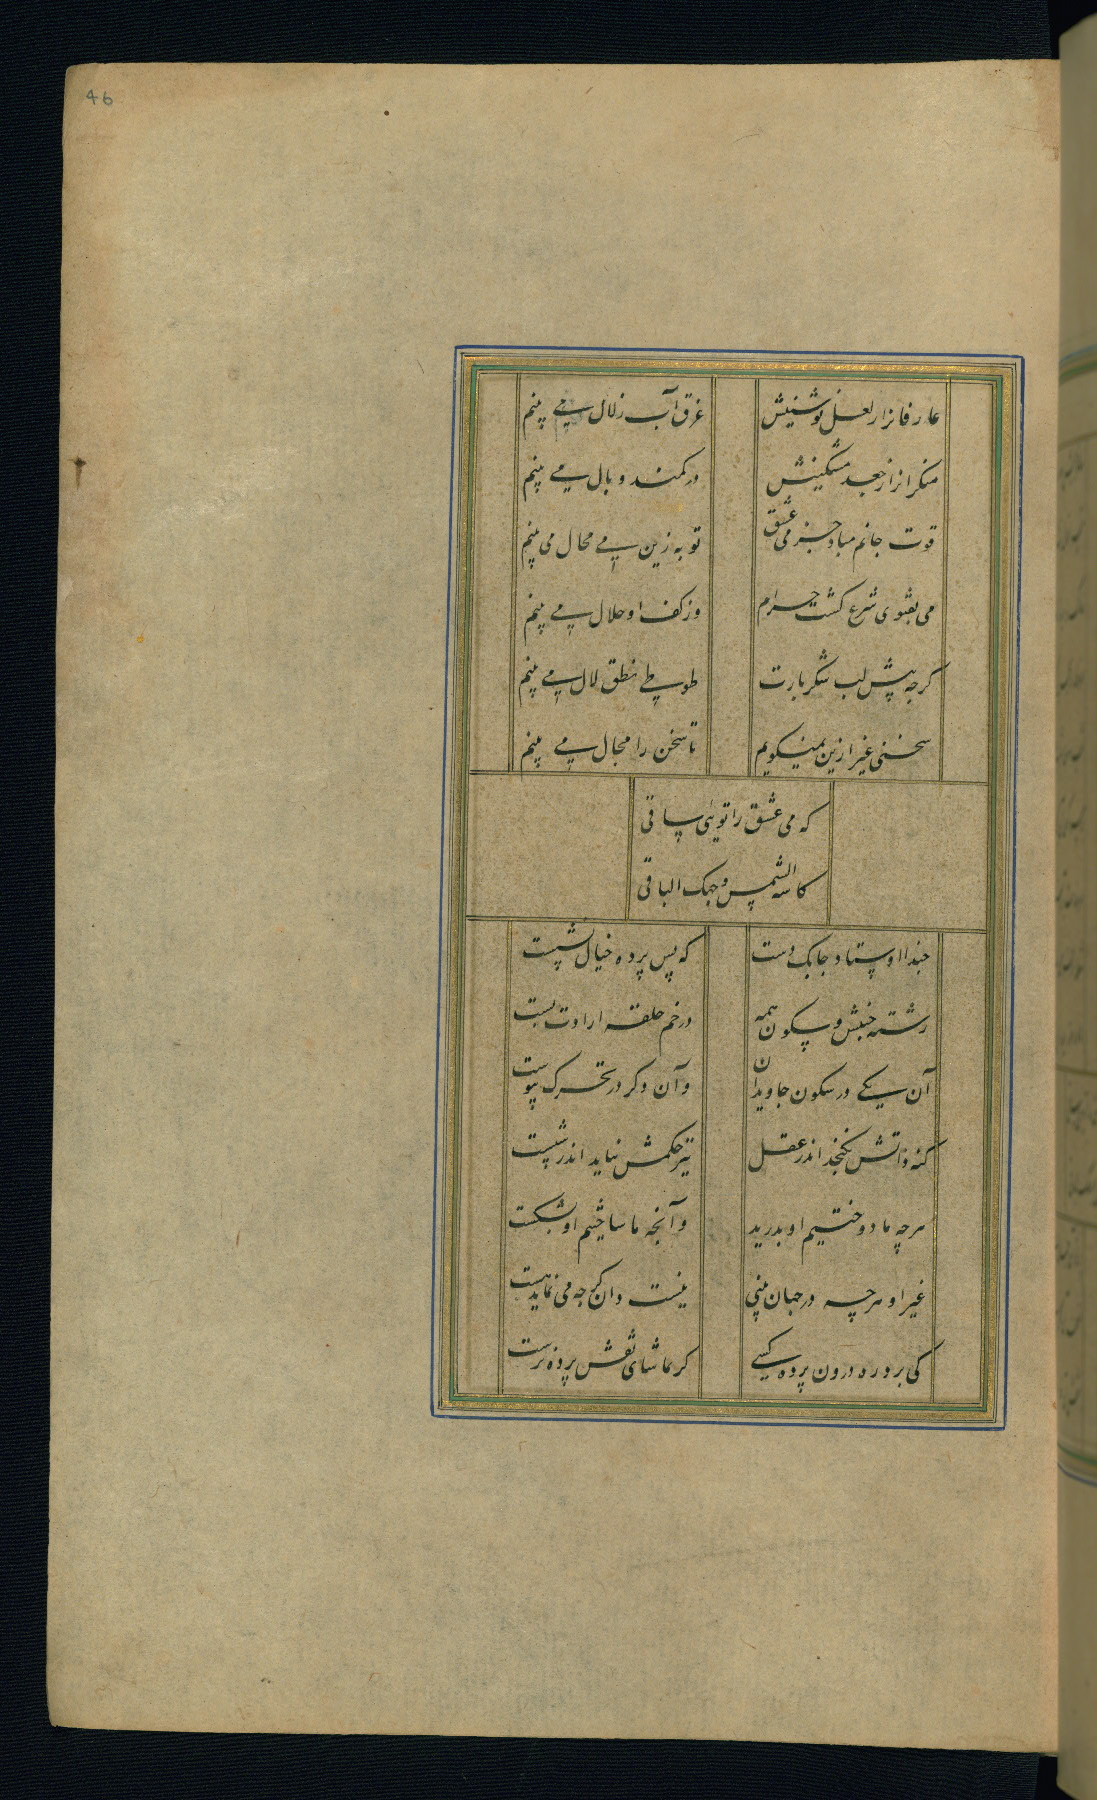 46
عارفانرا ز لعل نوشینش غرق آب زلال می بینم
منکرانرا ز جعد مشکینش در کمند وبال می بینم
قوت جانم مباد جز می عشق توبه زین می محال می بینم
می بفتوی شرع کشت حرام وز کف او حلال می بینم
کرچه پیش لب شکر بارت طوطی نطق لال می بینم
سخنی غیر ازین نمیکویم تا سخن را مجال می بینم
که می عشق را تویی ساقی
کاسه الشمس وجهک الباقی
حبذا اوستاد چابک دست که پس پرده خیال نشست
رشته جنبش و سکون همه در خم حلقه ارادت بست
آن یکی در سکون جاویدان وآن دکر در تحرک پیوست
کنه ذاتش نکنجد اندر عقل تیر حکمش نیاید اندر شست
هرچه ما دوختیم او بدرید وآنچه ما ساختیم او بشکست
غیر او هرچه در جهان بینی نیست دان کرچه می نماید هست
کی برد ره درون پرده کسی کز تماشای نقش پرده نرست